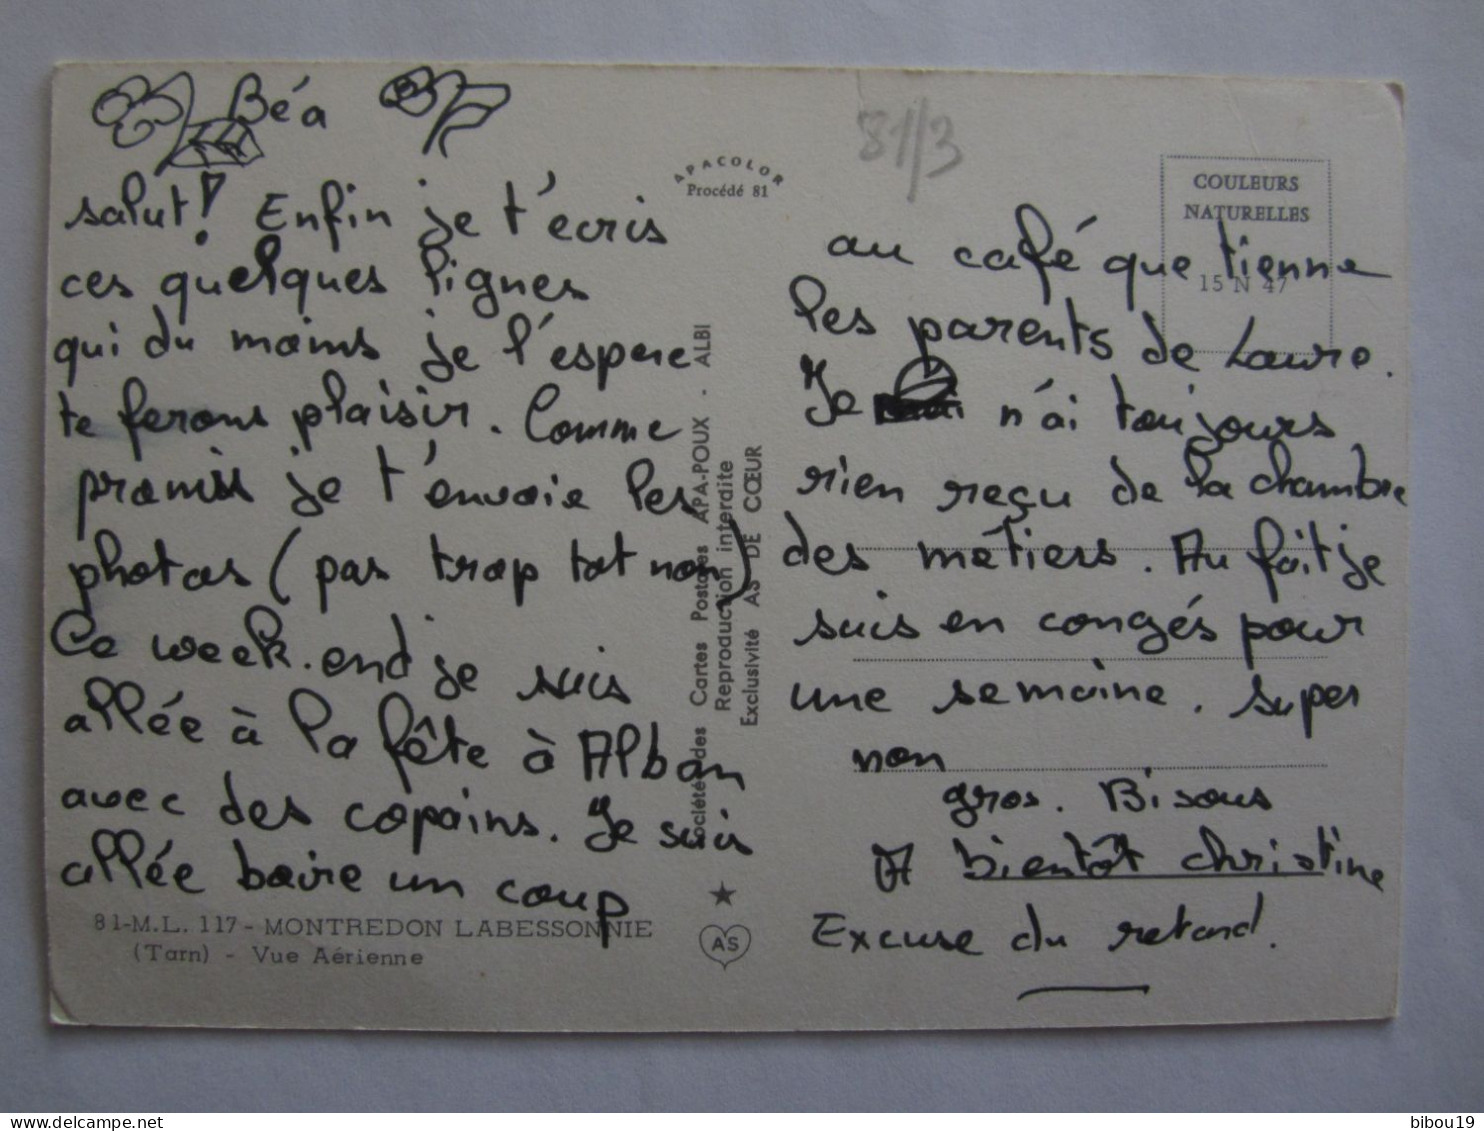 Béa
salut! Enfin je t'écris
ces quelques lignes
qui du moins je l'espere
te ferons plaisir. Comme
promis je t'envoie les
photos (pas trop tot non)
Ce week.end je suis
allée à la fête à Alban
avec des copains. Je suis
allée boire un coup
81-M.L. 117 - MONTREDON LABESSONNIE
(Tarn) - Vue Aérienne
APACOLOR
Procédé 81
Société des Cartes Postales APA-POUX - ALBI
Reproduction interdite
Exclusivité AS DE CŒUR
AS
81/3
COULEURS
NATURELLES
15 N 47
au café que tienne
les parents de Laure.
Je n'ai toujours
rien reçu de la chambre
des métiers. Au fait je
suis en congés pour
une semaine. super
non
gros. Bisous
A bientôt christine
Excuse du retard.
bibou19